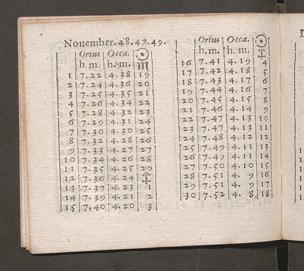 Nouember.48.47.49.
Ortus Occa. ☉
h. m. h. m. ♏
1 7.22 4.38 19
2 7.24 4.36 20
3 7.25 4.35 21
4 7.26 4.34 22
5 7.28 4.32 23
6 7.29 4.31 24
7 7.30 4.30 25
8 7.32 4.28 26
9 7.33 4.27 27
10 7.34 4.26 28
11 7.35 4.25 29
12 7.36 4.24 ♐
13 7.37 4.23 1
14 7.39 4.21 2
15 7.40 4.20 3
Ortus Occa. ☉
h. m. h. m. ♐
16 7.41 4.19 4
17 7.42 4.18 5
18 7.43 4.17 6
19 7.44 4.16 7
20 7.45 4.15 8
21 7.46 4.14 9
22 7.47 4.13 10
23 7.47 4.13 11
24 7.48 4.12 12
25 7.49 4.11 13
26 7.49 4.11 14
27 7.50 4.10 15
28 7.51 4. 9 16
29 7.51 4. 9 17
30 7.52 4. 8 18